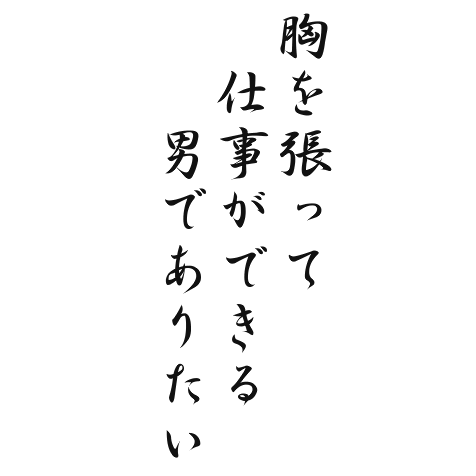 胸を張って
仕事ができる
男でありたい